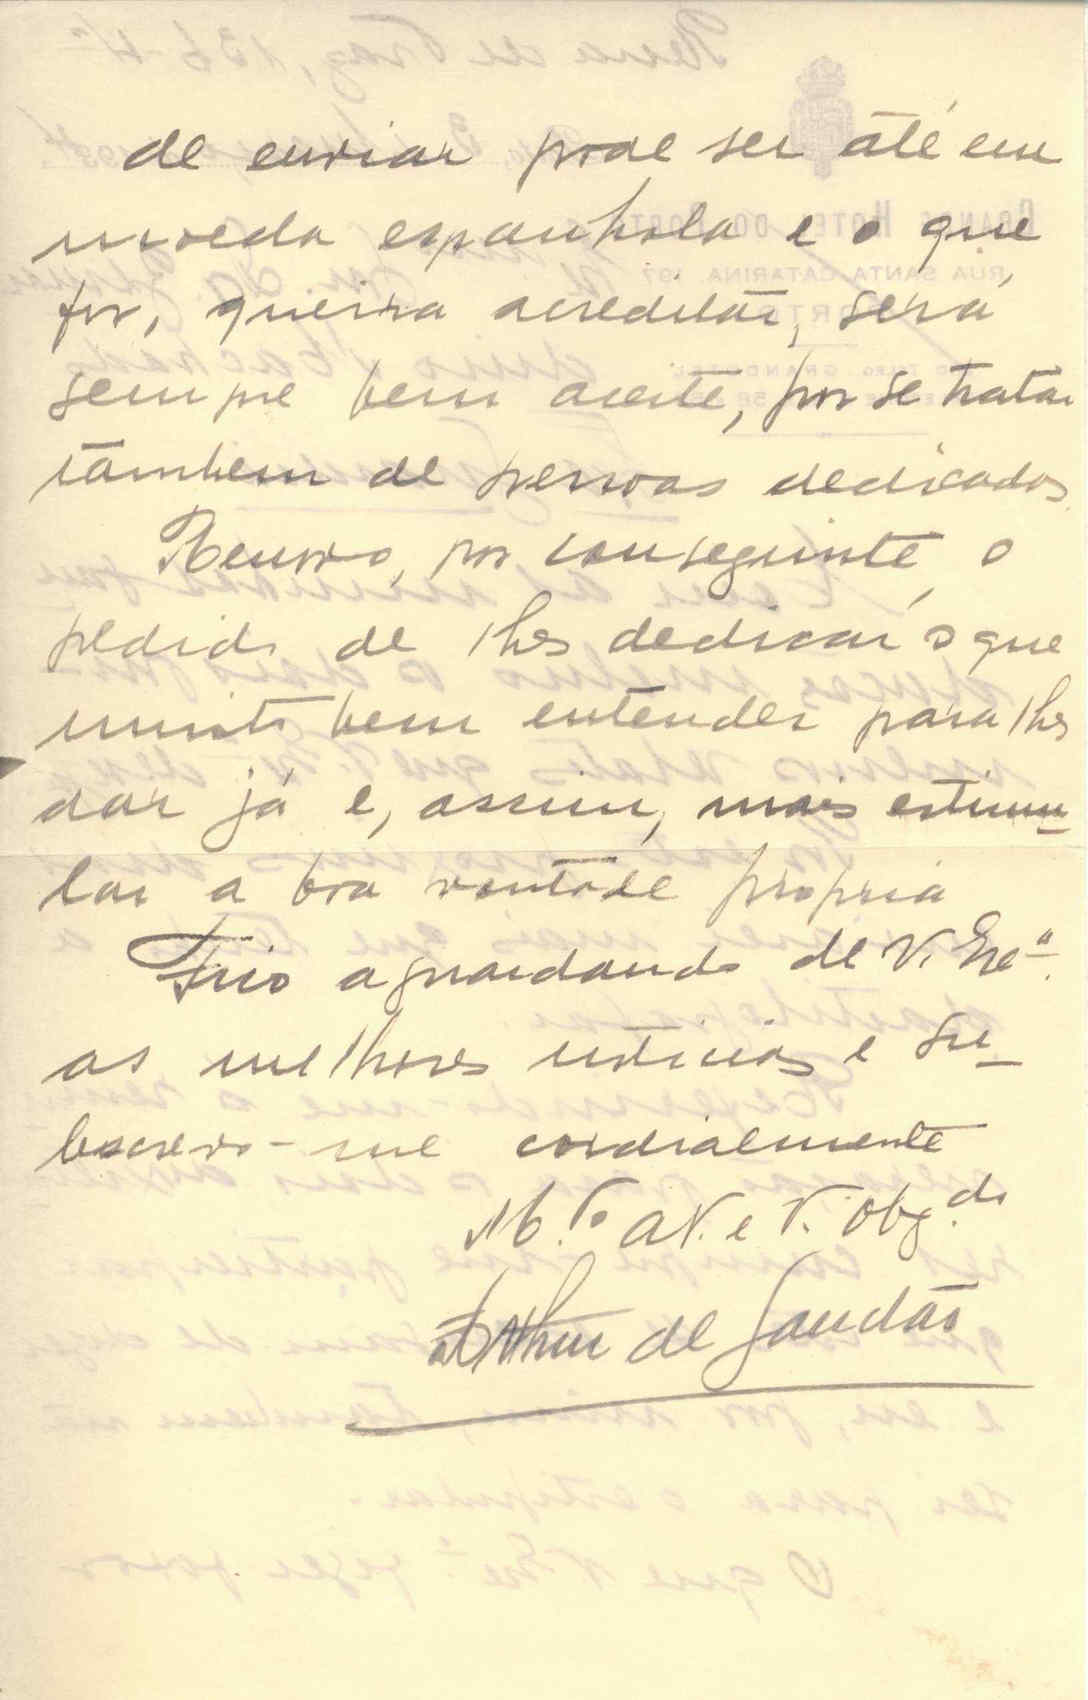 de enviar pode ser até em
moeda espanhola e o que
for, queira acreditar, será
sempre bem aceite, por se tratar
tambem de pessoas dedicadas.
Renovo, por conseguinte, o
pedido de lhes dedicar o que
muito bem entender para lhes
dar já e, assim, mais estimu-
lar a boa vontade propria
Fico aguardando de V. Exª.
as melhores noticias e su-
bscrevo-me cordialmente
M.to At. e V. Obg.do
Arthur de Sandão